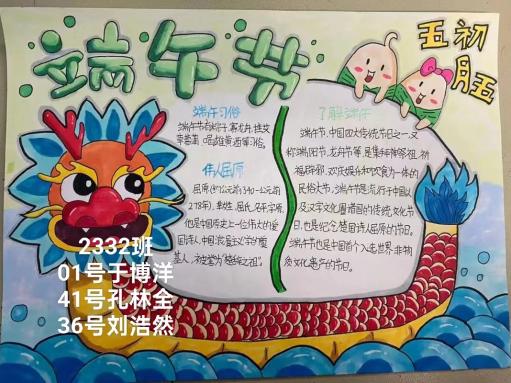 端午节
五初
月五
端午习俗
端午节有粽子、赛龙舟、挂艾
草菖蒲、喝雄黄酒等习俗。
伟人屈原
屈原(约公元前340-公元前
278年),芈姓,屈氏,名平,字原,
他是中国历史上一位伟大的爱
国诗人,中国浪漫主义文学的奠
基人,被誉为“楚辞之祖”
了解端午
端午节,中国四大传统节日之一,又
称端阳节、龙舟节等,是集拜神祭祖、祈
福辟邪、欢庆娱乐和饮食为一体的
民俗大节,端午节是流行于中国以
及汉字文化圈诸国的传统文化节
日,也是纪念楚国诗人屈原的节日。
端午节也是中国首个入选世界非物
质文化遗产的节日。
2332班
01号于博洋
41号孔林全
36号刘浩然